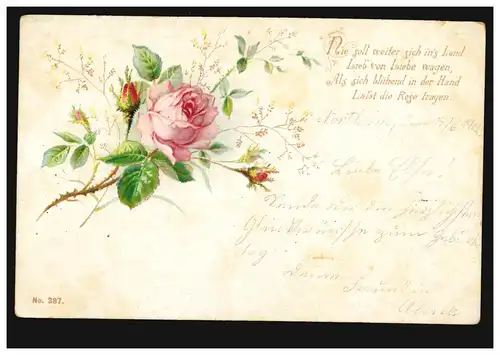 Nie soll weiter sich in's Land
Lieb von Liebe wagen,
Als sich blühend in der Hand
Läßt die Rose tragen.
Liebe Else!
Sende dir den herzlichsten
Glückwünsche zum Gebürts
tag!
Deine
Freundin
Alma
No. 387.